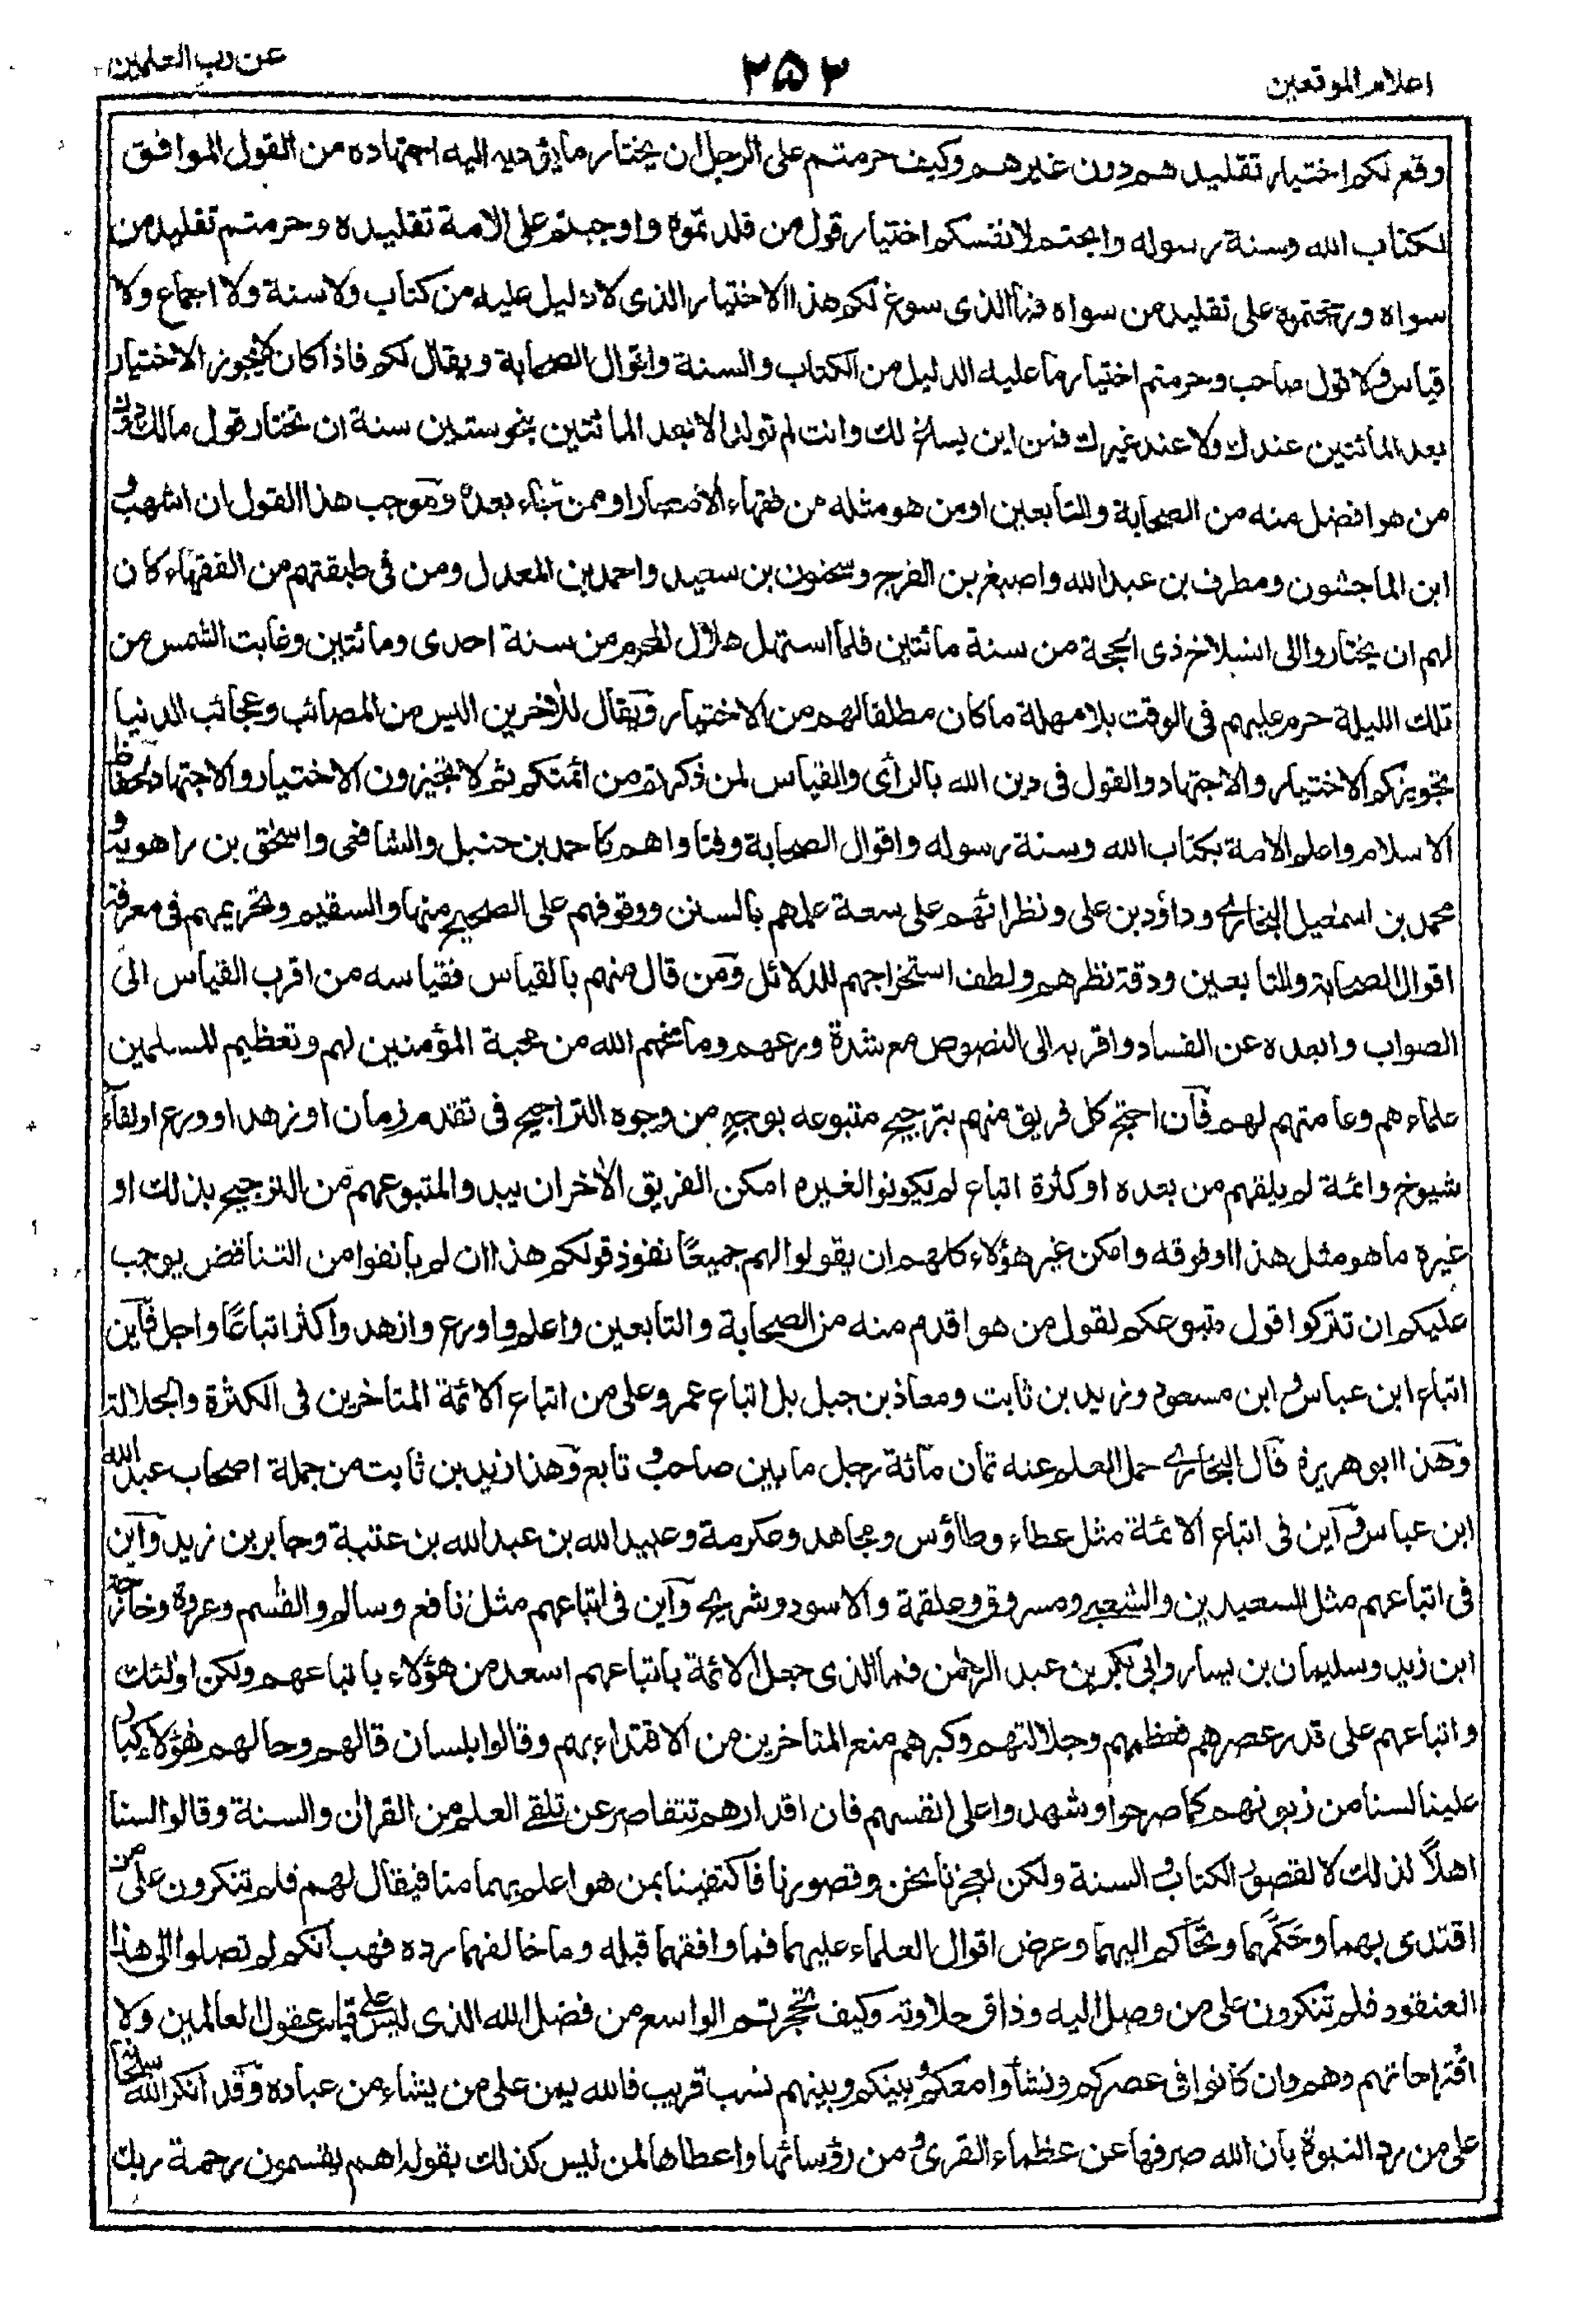 اعلام الموقعين
٢٥٢
عن رب العلمين
وقع لكم اختيار تقليدهم دون غيرهم وكيف حرمتم على الرجل ان يختار ما يؤديه اليه اجتهاده من القول الموافق
لكتاب الله وسنة رسوله وابحتم لانفسكم اختيار قول من قلدتموه واوجبتم على الامة تقليده وحرمتم تقليد من
سواه ورجحتموه على تقليد من سواه فما الذى سوغ لكم هذا الاختيار الذى لا دليل عليه من كتاب ولا سنة ولا اجماع ولا
قياس ولا قول صاحب وحرمتم اختيار ما عليه الدليل من الكتاب والسنة واقوال الصحابة ويقال لكم فاذا كان لا يجوز الاختيار
بعد المائتين عندك ولا عند غيرك فمن اين يساغ لك وانت لم تولد الا بعد المائتين بنحو ستين سنة ان تختار قول مالك دون
من هو افضل منه من الصحابة والتابعين او من هو مثله من فقهاء الامصار او ممن جاء بعده وموجب هذا القول ان اشهب و
ابن الماجشون ومطرف بن عبد الله واصبغ بن الفرج وسحنون بن سعيد واحمد بن المعدل ومن فى طبقتهم من الفقهاء كان
لهم ان يختاروا الى انسلاخ ذى الحجة من سنة مائتين فلما استهل هلال المحرم من سنة احدى ومائتين وغابت الشمس من
تلك الليلة حرم عليهم فى الوقت بلا مهلة ما كان مطلقا لهم من الاختيار ويقال للآخرين اليس من المصائب وعجائب الدنيا
تجويزكم الاختيار والاجتهاد والقول فى دين الله بالرأى والقياس لمن ذكرتم من ائمتكم ثم لا تجيزون الاختيار والاجتهاد لحفاظ
الاسلام واعلم الامة بكتاب الله وسنة رسوله واقوال الصحابة وفتاواهم كاحمد بن حنبل والشافعى واسحٰق بن راهويه و
محمد بن اسمٰعيل البخارى وداؤد بن على ونظرائهم على سعة علمهم بالسنن ووقوفهم على الصحيح منها والسقيم وتحريهم فى معرفة
اقوال الصحابة والتابعين ودقة نظرهم ولطف استخراجهم للدلائل ومن قال منهم بالقياس فقياسه من اقرب القياس الى
الصواب وابعده عن الفساد واقربه الى النصوص مع شدة ورعهم وما منحهم الله من محبة المؤمنين لهم وتعظيم المسلمين
علماءهم وعامتهم لهم فان احتج كل فريق منهم بترجيح متبوعه بوجهٍ من وجوه التراجيح فى تقدم زمان او زهد او ورع او لقاء
شيوخ وائمة لم يلقهم من بعده او كثرة اتباع لم يكونوا لغيره امكن الفريق الآخر ان يبدوا لمتبوعهم من الترجيح بذلك او
غيره ما هو مثل هذا او فوقه وامكن غير هؤلاء كلهم ان يقولوا لهم جميعًا نفوذ قولكم هذا ان لم يأنفوا من التناقض يوجب
عليكم ان تتركوا قول متبوعكم لقول من هو اقدم منه من الصحابة والتابعين واعلم واورع وازهد واكثر اتباعًا واجل فاين
اتباع ابن عباس وابن مسعود وزيد بن ثابت ومعاذ بن جبل بل اتباع عمر وعلى من اتباع الائمة المتاخرين فى الكثرة والجلالة
وهذا ابو هريرة قال البخارى حمل العلم عنه ثمان مائة رجل ما بين صاحب وتابع وهذا زيد بن ثابت من جملة اصحاب عبد الله
ابن عباس واين فى اتباع الائمة مثل عطاء وطاؤس ومجاهد وعكرمة وعبيد الله بن عبد الله بن عتبة وجابر بن زيد واين
فى اتباعهم مثل السعيدين والشعبى ومسروق وعلقمة والاسود وشريح واين فى اتباعهم مثل نافع وسالم والقٰسم وعروة وخارجة
ابن زيد وسليمان بن يسار وابى بكر بن عبد الرحمٰن فما الذى جعل الائمة باتباعهم اسعد من هؤلاء باتباعهم ولكن اولئك
واتباعهم على قدر عصرهم فعظمهم وجلالتهم وكبرهم منع المتاخرين من الاقتداء بهم وقالوا بلسان قالهم وحالهم هؤلاء كبار
علينا لسنا من زبونهم كما صرحوا وشهدوا على انفسهم فان اقدارهم تتقاصر عن تلقى العلم من القرآن والسنة وقالوا لسنا
اهلاً لذلك لا لقصور الكتاب والسنة ولكن لعجزنا نحن وقصورنا فاكتفينا بمن هو اعلم بهما منا فيقال لهم فلم تنكرون على من
اقتدى بهما وحكّمهما وتحاكم اليهما وعرض اقوال العلماء عليهما فما وافقهما قبله وما خالفهما رده فهب انكم لم تصلوا الى هذا
العنقود فلم تنكرون على من وصل اليه وذاق حلاوته وكيف تحجرتم الواسع من فضل الله الذى ليس على قياس عقول العالمين ولا
اقتراحاتهم وهم وان كانوا فى عصركم ونشأوا معكم وبينكم وبينهم نسب قريب فالله يمن على من يشاء من عباده وقد انكر الله سبحانه
على من رد النبوة بان الله صرفها عن عظماء القرى ومن رؤسائها واعطاها لمن ليس كذلك بقوله اهم يقسمون رحمة ربك